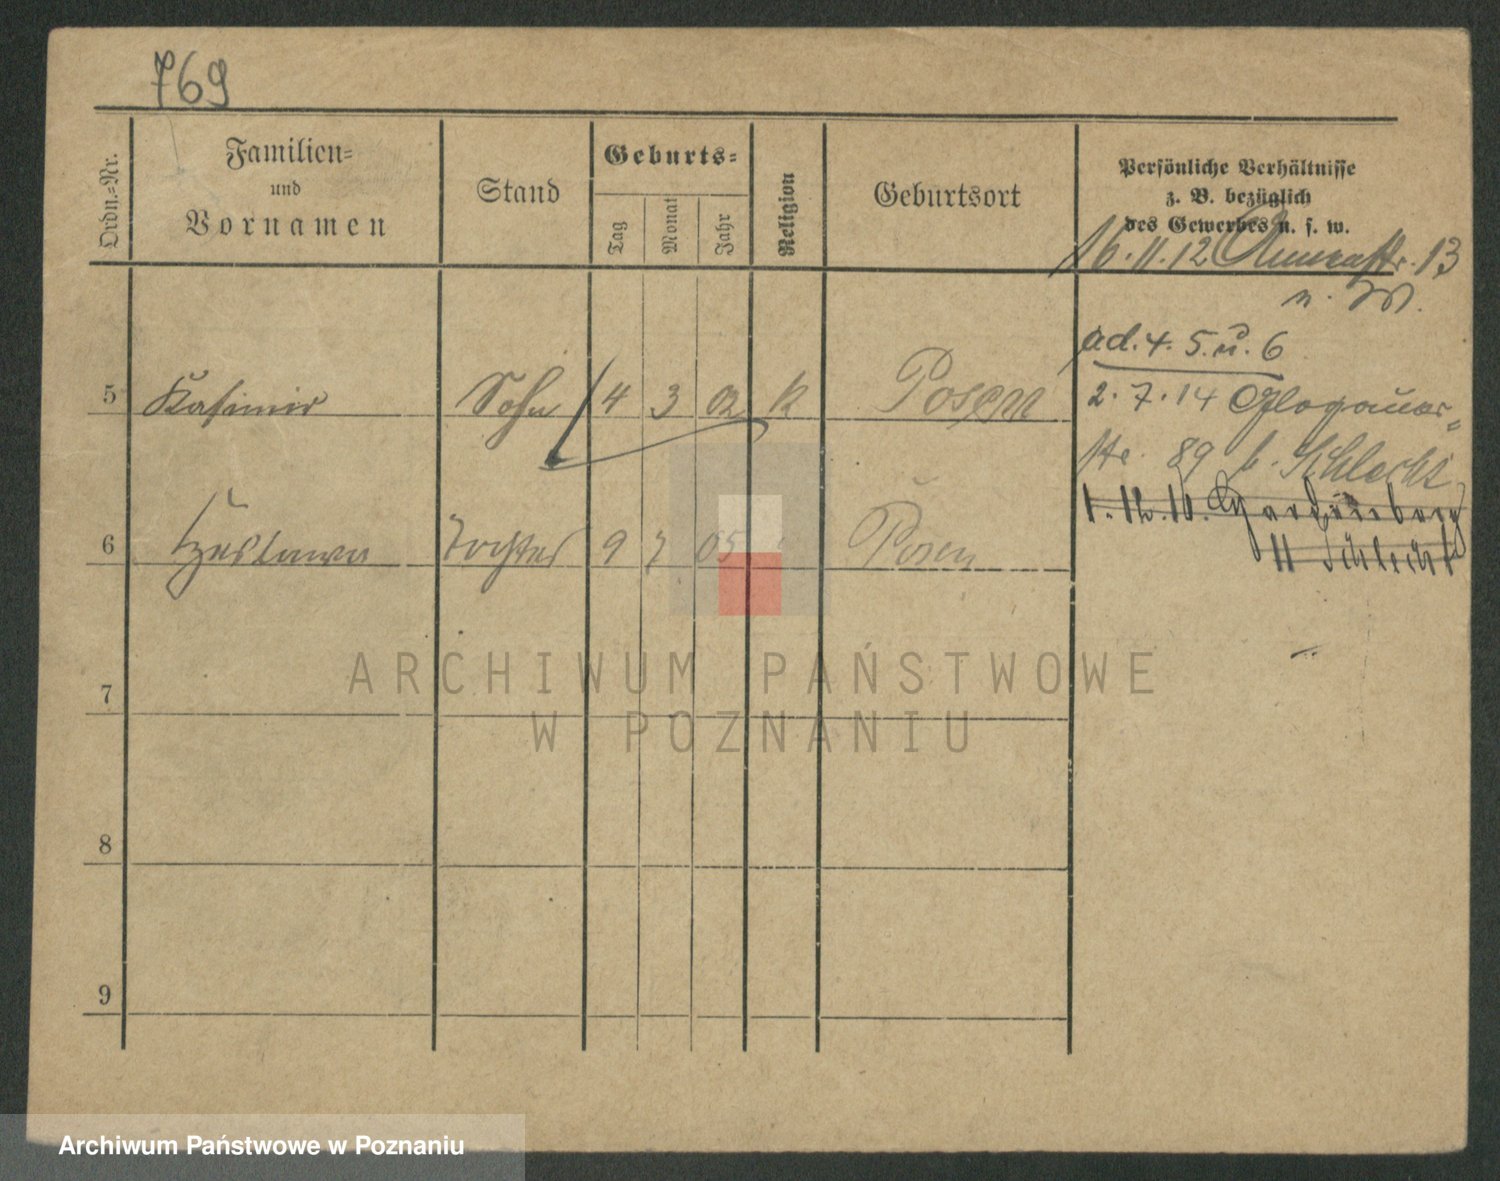 769
Ordn.=Nr.
Familien=
und
Vornamen
Stand
Geburts=
Tag
Monat
Jahr
Religion
Geburtsort
Persönliche Verhältnisse
z. B. bezüglich
des Gewerbes u. s. w.
16.11.12 13
ad. 4. 5. u. 6
5 Kasimir Sohn 4 3 02 k Posen
2.7.14 Glogauer=
str. 89 b. Schlecht
1.12.10.
6 Czeslawa Tochter 9 7 05 Posen
II Schlecht
7
8
9
ARCHIWUM PAŃSTWOWE
W POZNANIU
Archiwum Państwowe w Poznaniu